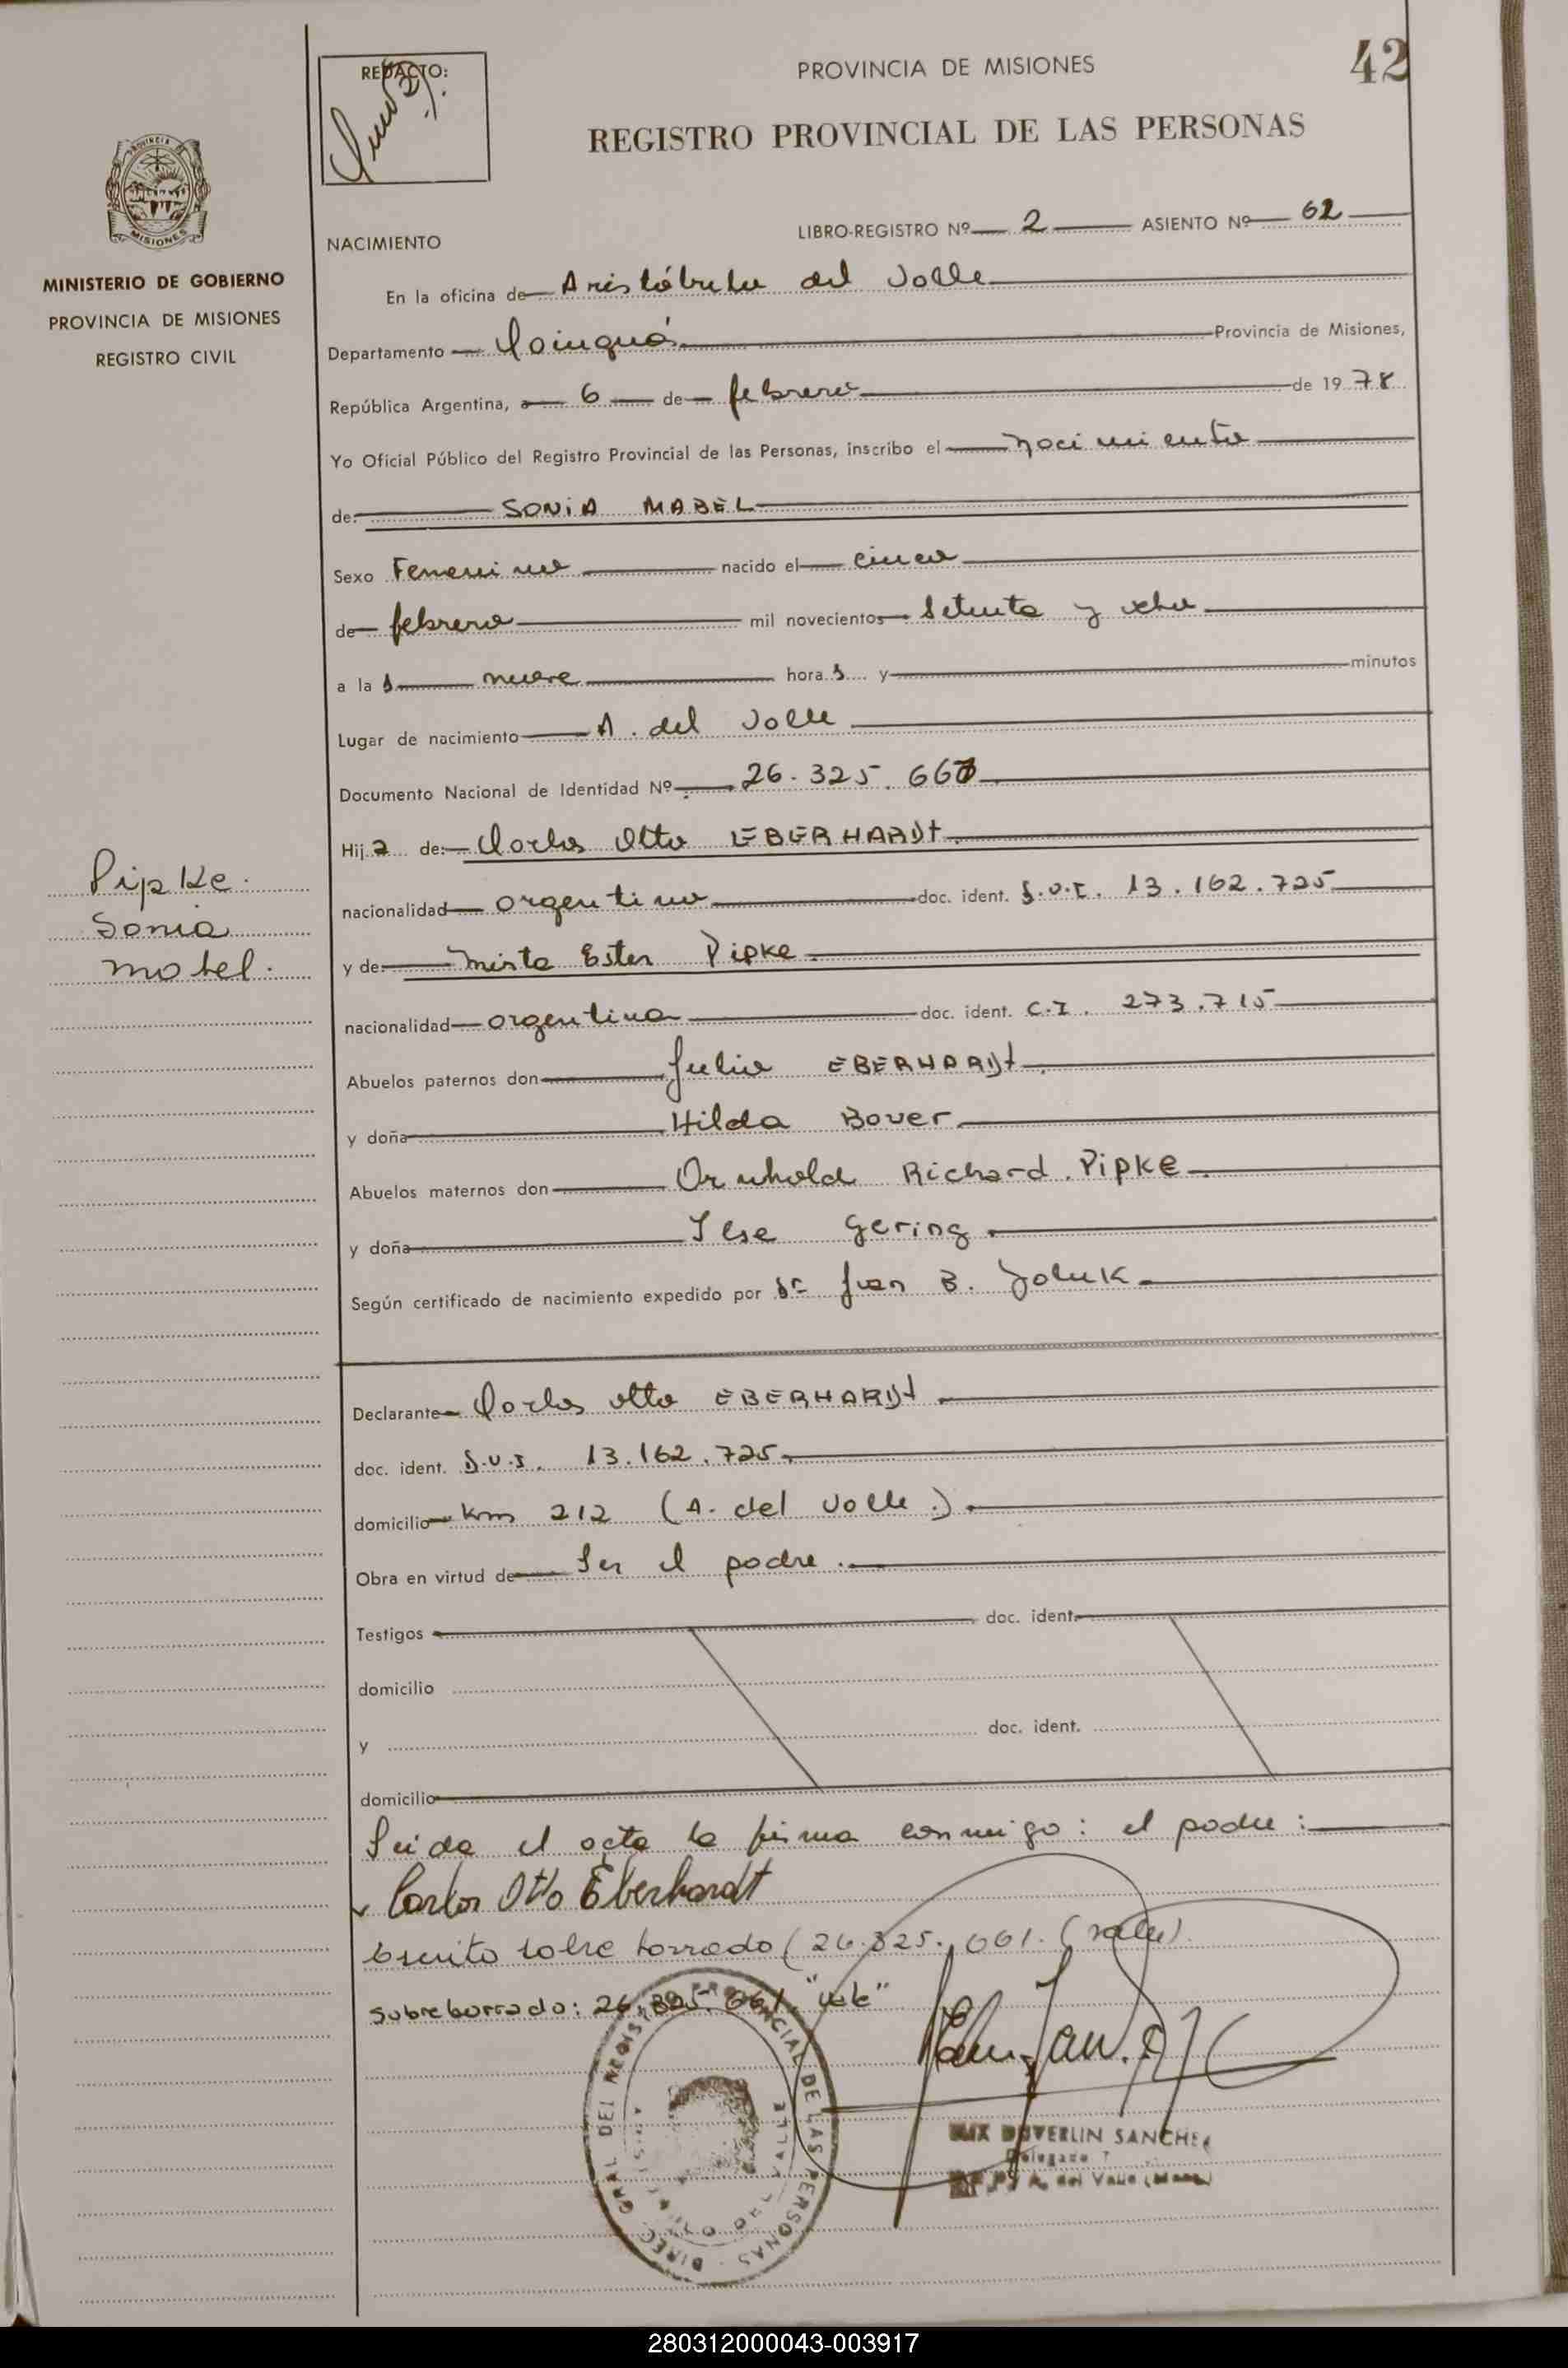 42
REDACTO:
PROVINCIA DE MISIONES
REGISTRO PROVINCIAL DE LAS PERSONAS
MISIONES
MINISTERIO DE GOBIERNO
PROVINCIA DE MISIONES
REGISTRO CIVIL
LIBRO-REGISTRO Nº 2 ASIENTO Nº 62
NACIMIENTO
En la oficina de Aristóbulo del Valle
Departamento Cainguás Provincia de Misiones,
República Argentina, a 6 de febrero de 1978
Yo Oficial Público del Registro Provincial de las Personas, inscribo el nacimiento
de: SONIA MABEL
Sexo Femenino nacido el cinco
de febrero mil novecientos setenta y ocho
a las nueve horas y minutos
Lugar de nacimiento A. del Valle
Documento Nacional de Identidad Nº 26.325.661
Hija de: Carlos Otto EBERHARDt
nacionalidad argentino doc. ident. D.N.I. 13.162.725
y de Mirta Ester Pipke
nacionalidad argentina doc. ident. C.I. 273.715
Abuelos paternos don Julio EBERHARDt
y doña Hilda Bover
Abuelos maternos don Richard Pipke
y doña Ilse Gering
Según certificado de nacimiento expedido por Dr Juan B.
Pipke
Sonia
Mabel.
Declarante Carlos Otto EBERHARDt
doc. ident. D.N.I. 13.162.725
domicilio Km 212 (A. del Valle.)
Obra en virtud de Ser el padre.
Testigos doc. ident.
domicilio
y doc. ident.
domicilio
Leida el acta la firma conmigo: el padre:
Carlos Otto Eberhardt
Escrito sobre borrado (26.325.661. (vale).
Sobre borrado: 26.325.661. "vale"
DIREC. GRAL DEL REGISTRO PROVINCIAL DE LAS PERSONAS
DOVERLIN SANCHEZ
Delegado
A. del Valle
280312000043-003917